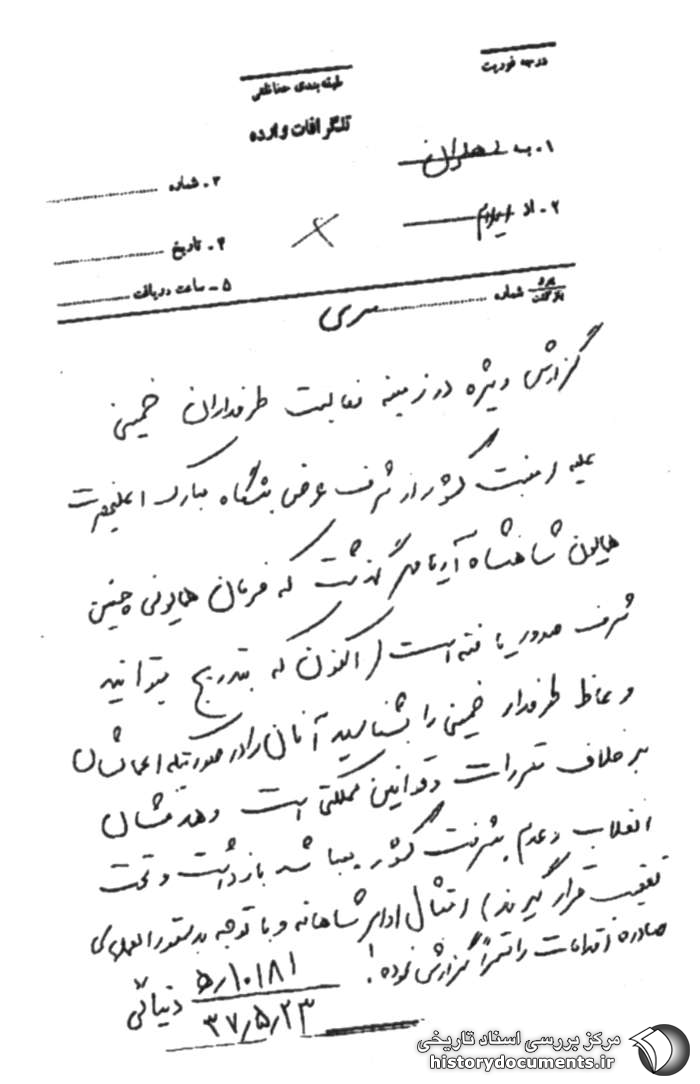 درجه فوریت
طبقه‌بندی حفاظتی
تلگرافات وارده
۱- به
۲- از ایلام
۳- شماره
۴- تاریخ
۵- ساعت دریافت
شماره
سری
گزارش ویژه در زمینه فعالیت طرفداران خمینی
علیه امنیت کشور از شرف عرض پیشگاه مبارک اعلیحضرت
همایون شاهنشاه آریامهر گذشت که فرمان همایونی چنین
شرف صدور یافته است (اکنون که بتدریج میتوانید
وعاظ طرفدار خمینی را بشناسید آنان را در صورتیکه اعمالشان
بر خلاف مقررات و قوانین مملکتی است و هدفشان
انقلاب و عدم پیشرفت کشور میباشد بازداشت و تحت
تعقیب قرار گیرند) امتثال اوامر شاهانه و با توجه بدستورالعملهای
صادره اقدامات را گزارش نموده!
۵٫۱۰۱۸۱
۳۷٫۵٫۲۳
مرکز بررسی اسناد تاریخی
historydocuments.ir